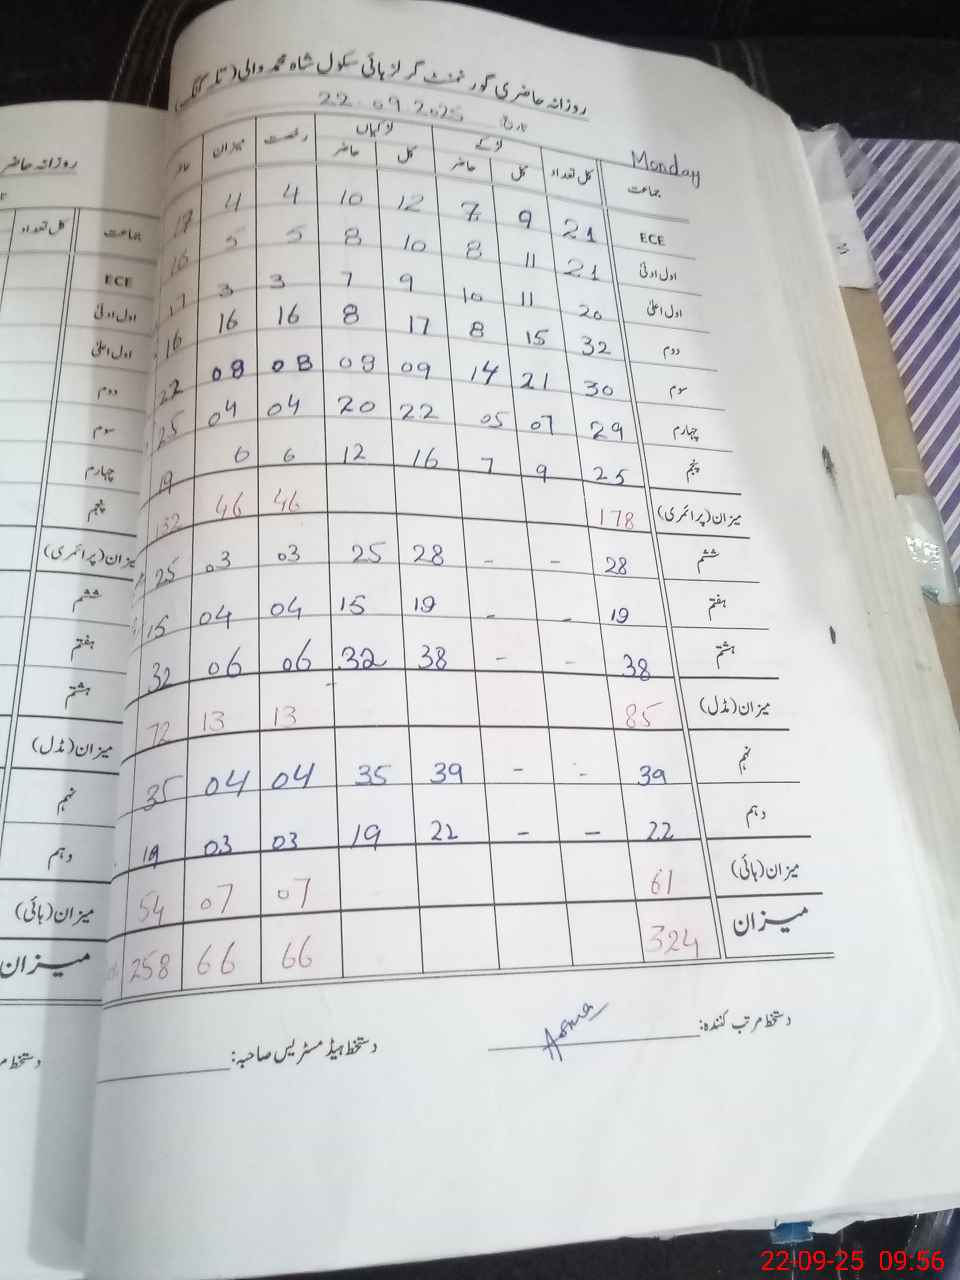 روزانہ حاضری گورنمنٹ گرلز ہائی سکول شاہ محمد والی (تلہ گنگ)
Monday تاریخ 22.09.2025
جماعت کل تعداد لڑکے لڑکیاں رخصت میزان حاضر
کل حاضر کل حاضر
ECE 21 9 7 12 10 4 4 17
اول ادنیٰ 21 11 8 10 8 5 5 16
اول اعلیٰ 20 11 10 9 7 3 3 17
دوم 32 15 8 17 8 16 16 16
سوم 30 21 14 09 08 08 08 22
چہارم 29 07 05 22 20 04 04 25
پنجم 25 9 7 16 12 6 6 19
میزان (پرائمری) 178 46 46 132
ششم 28 - - 28 25 03 03 25
ہفتم 19 - - 19 15 04 04 15
ہشتم 38 - - 38 32 06 06 32
میزان (مڈل) 85 13 13 72
نہم 39 - - 39 35 04 04 35
دہم 22 - - 22 19 03 03 19
میزان (ہائی) 61 07 07 54
میزان 324 66 66 258
دستخط مرتب کنندہ: Asma
دستخط ہیڈ مسٹریس صاحبہ:
روزانہ حاضر
جماعت کل تعداد
ECE
اول ادنیٰ
اول اعلیٰ
دوم
سوم
چہارم
پنجم
میزان (پرائمری)
ششم
ہفتم
ہشتم
میزان (مڈل)
نہم
دہم
میزان (ہائی)
میزان
دستخط
22-09-25 09:56